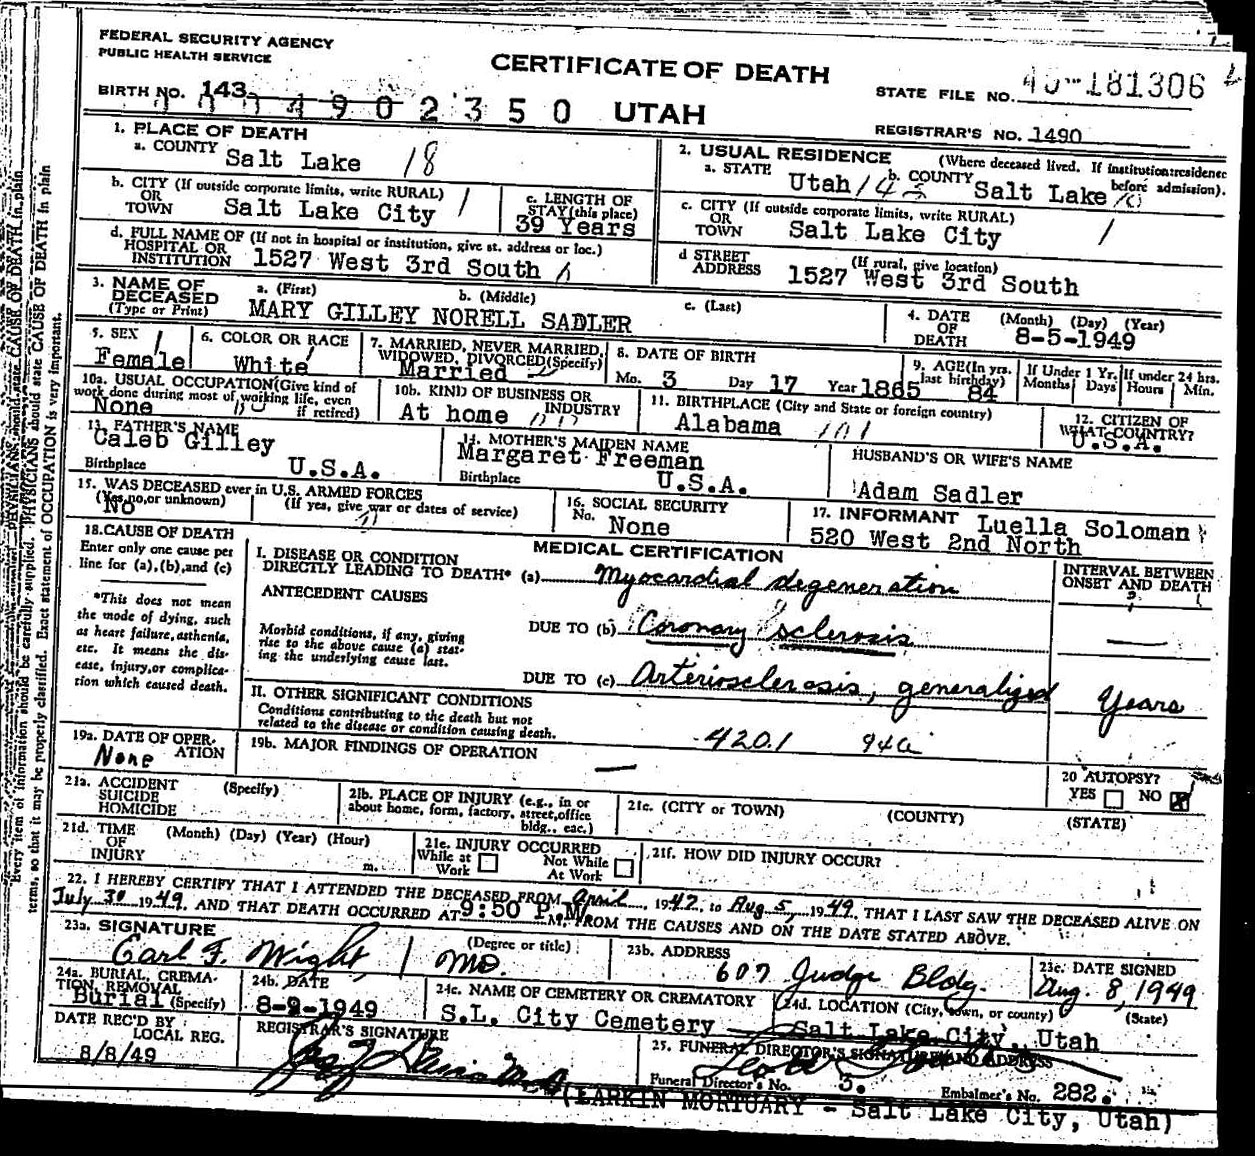 FEDERAL SECURITY AGENCY
PUBLIC HEALTH SERVICE
CERTIFICATE OF DEATH
BIRTH NO. 143
0004902350 UTAH
STATE FILE NO. 181306
REGISTRAR'S NO. 1490
1. PLACE OF DEATH
a. COUNTY Salt Lake 18
b. CITY (If outside corporate limits, write RURAL) OR TOWN Salt Lake City 1
c. LENGTH OF STAY (this place) 39 Years
d. FULL NAME OF (If not in hospital or institution, give st. address or loc.) HOSPITAL OR INSTITUTION 1527 West 3rd South
2. USUAL RESIDENCE (Where deceased lived. If institution: residence before admission).
a. STATE Utah b. COUNTY Salt Lake
c. CITY (If outside corporate limits, write RURAL) OR TOWN Salt Lake City 1
d STREET ADDRESS (If rural, give location) 1527 West 3rd South
3. NAME OF DECEASED (Type or Print) a. (First) b. (Middle) c. (Last)
MARY GILLEY NORELL SADLER
4. DATE OF DEATH (Month) (Day) (Year) 8-5-1949
5. SEX Female
6. COLOR OR RACE White
7. MARRIED, NEVER MARRIED, WIDOWED, DIVORCED (Specify) Married
8. DATE OF BIRTH Mo. 3 Day 17 Year 1865
9. AGE (In yrs. last birthday) 84
If Under 1 Yr. Months Days
If under 24 hrs. Hours Min.
10a. USUAL OCCUPATION (Give kind of work done during most of working life, even if retired) None
10b. KIND OF BUSINESS OR INDUSTRY At home
11. BIRTHPLACE (City and State or foreign country) Alabama 101
12. CITIZEN OF WHAT COUNTRY? U.S.A.
13. FATHER'S NAME Caleb Gilley
Birthplace U.S.A.
14. MOTHER'S MAIDEN NAME Margaret Freeman
Birthplace U.S.A.
HUSBAND'S OR WIFE'S NAME
Adam Sadler
15. WAS DECEASED ever in U.S. ARMED FORCES
(Yes, no, or unknown) No (If yes, give war or dates of service)
16. SOCIAL SECURITY No. None
17. INFORMANT Luella Soloman
520 West 2nd North
18. CAUSE OF DEATH
Enter only one cause per line for (a), (b), and (c)
*This does not mean the mode of dying, such as heart failure, asthenia, etc. It means the disease, injury, or complication which caused death.
MEDICAL CERTIFICATION
I. DISEASE OR CONDITION DIRECTLY LEADING TO DEATH* (a) Myocardial degeneration
ANTECEDENT CAUSES
Morbid conditions, if any, giving rise to the above cause (a) stating the underlying cause last.
DUE TO (b) Coronary sclerosis
DUE TO (c) Arteriosclerosis, generalized
INTERVAL BETWEEN ONSET AND DEATH
?
—
Years
II. OTHER SIGNIFICANT CONDITIONS
Conditions contributing to the death but not related to the disease or condition causing death.
420.1
19a. DATE OF OPERATION None
19b. MAJOR FINDINGS OF OPERATION —
20 AUTOPSY? YES NO X
21a. ACCIDENT SUICIDE HOMICIDE (Specify)
21b. PLACE OF INJURY (e.g., in or about home, form, factory, street, office bldg., eac.)
21c. (CITY or TOWN) (COUNTY) (STATE)
21d. TIME OF INJURY (Month) (Day) (Year) (Hour) m.
21e. INJURY OCCURRED While at Work Not While At Work
21f. HOW DID INJURY OCCUR?
22. I HEREBY CERTIFY THAT I ATTENDED THE DECEASED FROM April 1947, to Aug 5, 1949, THAT I LAST SAW THE DECEASED ALIVE ON
July 30 1949, AND THAT DEATH OCCURRED AT 9:50 P.M. M., FROM THE CAUSES AND ON THE DATE STATED ABOVE.
23a. SIGNATURE (Degree or title)
Earl F. Wight, MD.
23b. ADDRESS 607 Judge Bldg.
23c. DATE SIGNED Aug. 8, 1949
24a. BURIAL, CREMATION, REMOVAL (Specify) Burial
24b. DATE 8-9-1949
24c. NAME OF CEMETERY OR CREMATORY S.L. City Cemetery
24d. LOCATION (City, town, or county) (State)
Salt Lake City, Utah
DATE REC'D BY LOCAL REG. 8/8/49
REGISTRAR'S SIGNATURE
25. FUNERAL DIRECTOR'S SIGNATURE AND ADDRESS
Funeral Director's No. 3. Embalmer's No. 282.
(LARKIN MORTUARY - Salt Lake City, Utah)
Every item of information should be carefully supplied. PHYSICIANS should state CAUSE OF DEATH in plain
terms, so that it may be properly classified. Exact statement of OCCUPATION is very important.